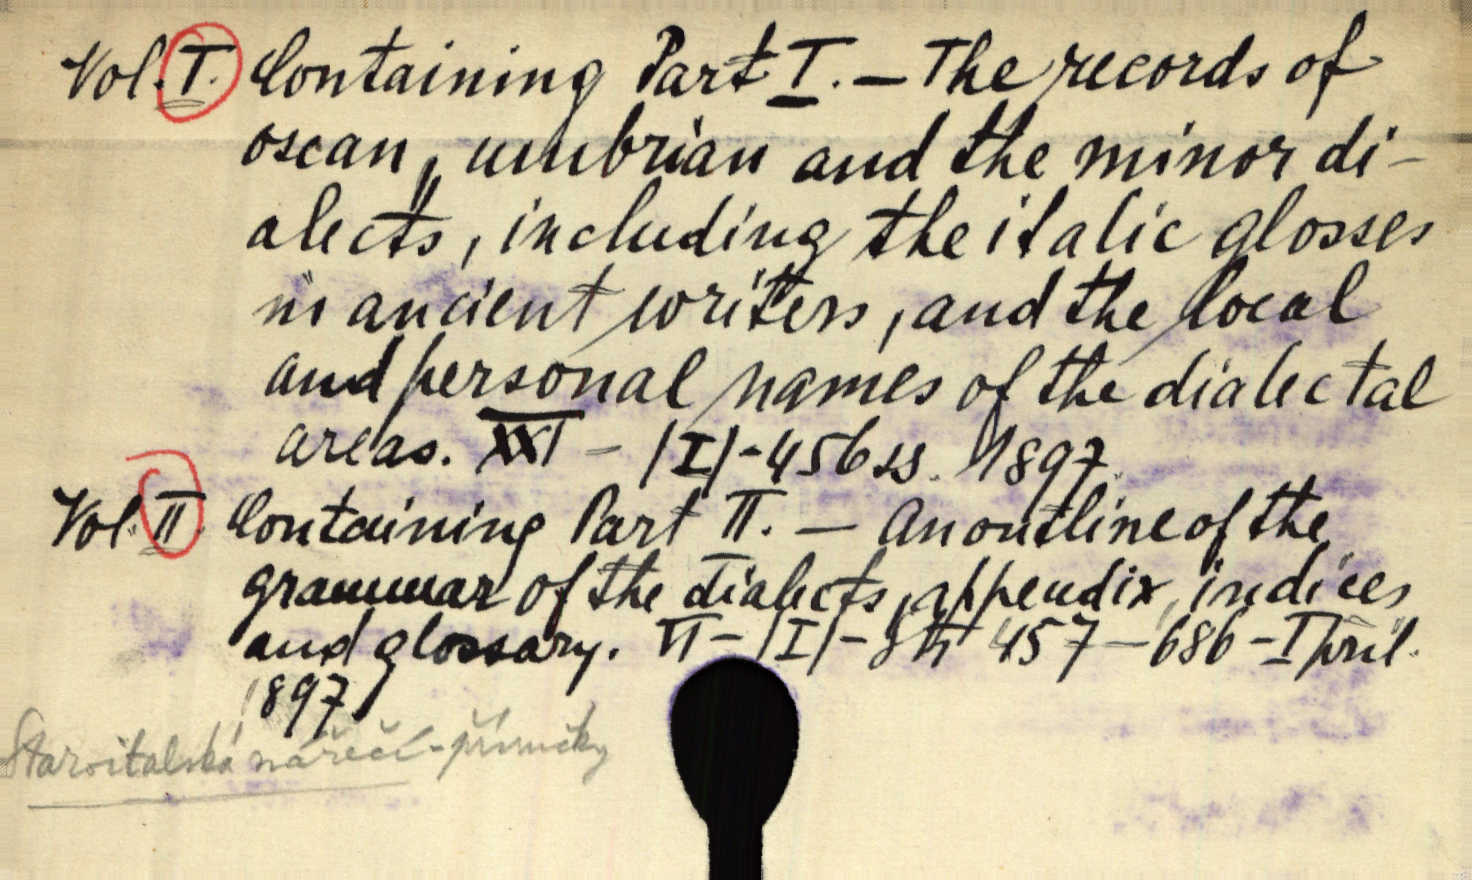 Vol. I. Containing Part I. — The records of
oscan, umbrian and the minor di-
alects, including the italic glosses
in ancient writers, and the local
and personal names of the dialectal
areas. XXI - /I/-456 ss. 1897.
Vol. II. Containing Part II. — An outline of the
grammar of the dialects, appendix, indices
and glossary. VI - /I/ - 457 — 686 - I příl.
1897
Staroitalská nářečí - příručky